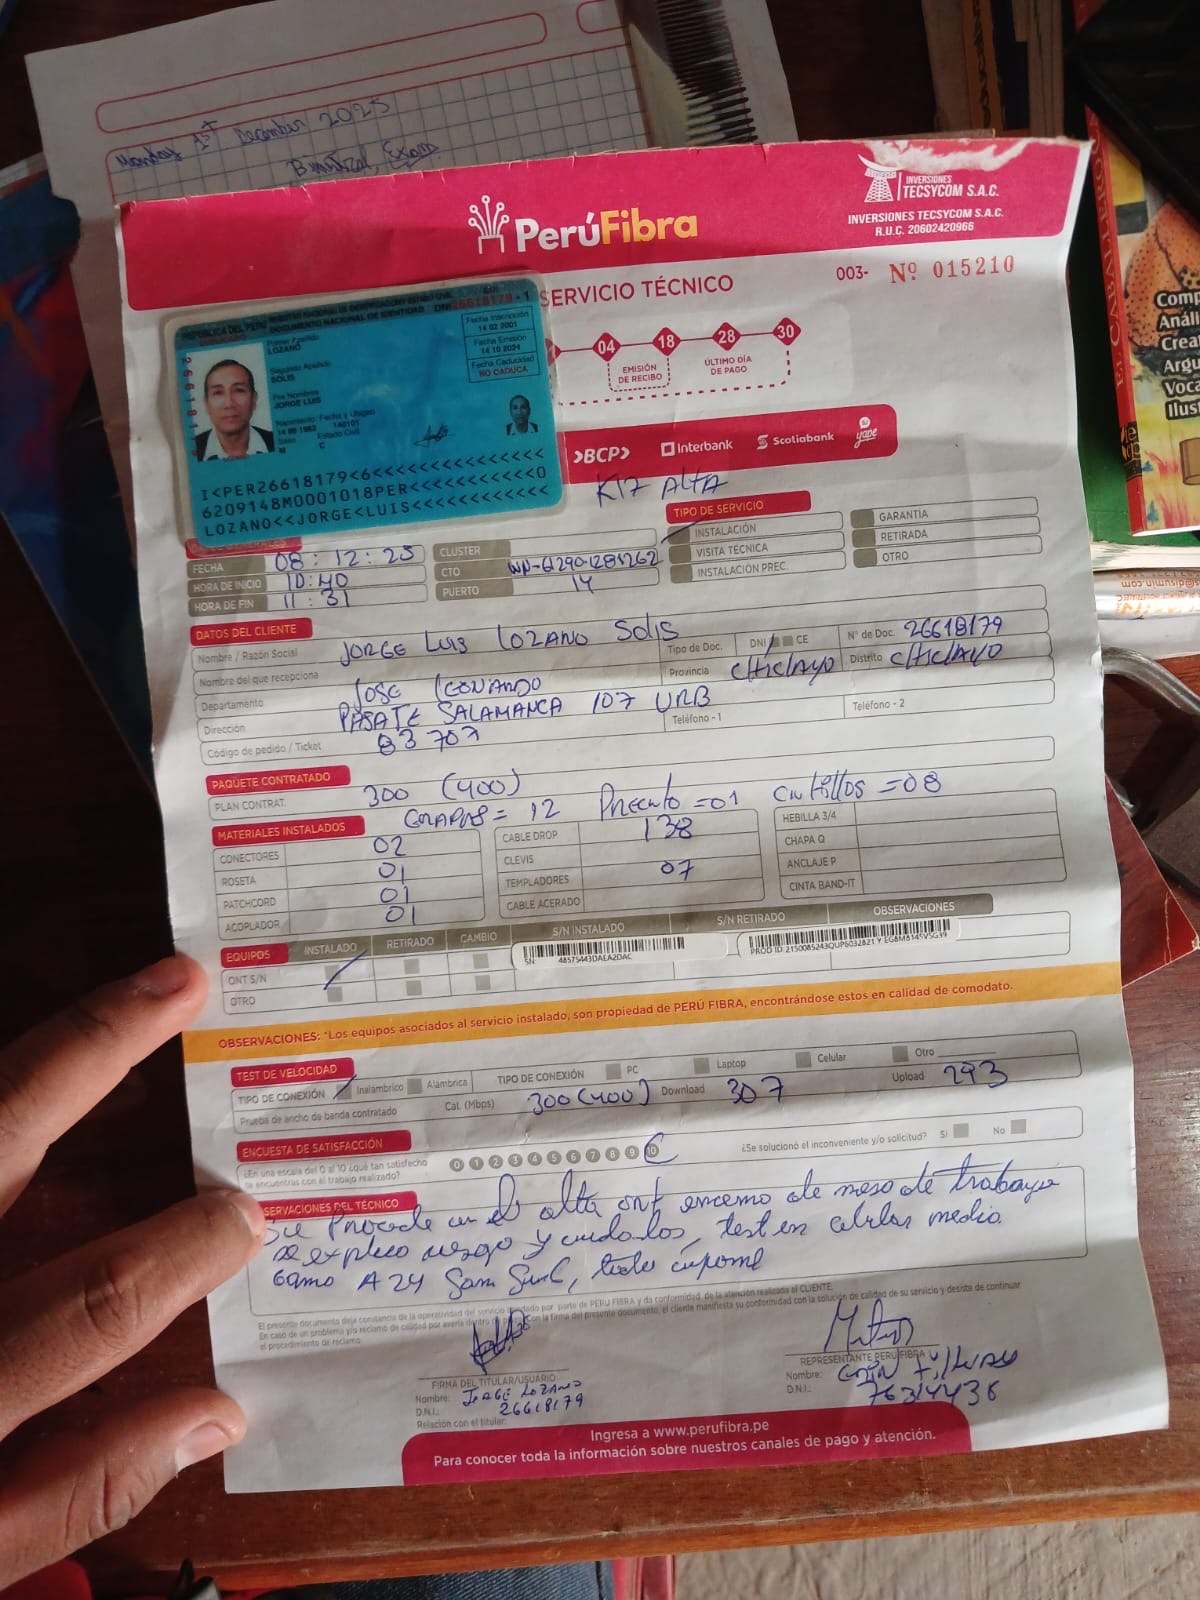 Monday 1st December 2025
Bimestral Exam
PerúFibra
INVERSIONES
TECSYCOM S.A.C.
INVERSIONES TECSYCOM S.A.C.
R.U.C. 20602420966
SERVICIO TÉCNICO
003- Nº 015210
04 18 28 30
EMISIÓN
DE RECIBO
ÚLTIMO DÍA
DE PAGO
>BCP> Interbank Scotiabank yape
REPÚBLICA DEL PERÚ REGISTRO NACIONAL DE IDENTIFICACIÓN Y ESTADO CIVIL
DOCUMENTO NACIONAL DE IDENTIDAD DNI 26618179 - 1
Primer Apellido
LOZANO
Segundo Apellido
SOLIS
Pre Nombres
JORGE LUIS
Nacimiento: Fecha y Ubigeo
14 09 1962 140101
Sexo Estado Civil
M C
Fecha Inscripción
14 02 2001
Fecha Emisión
14 10 2024
Fecha Caducidad
NO CADUCA
I<PER26618179<6<<<<<<<<<<<<<<<
6209148M0001018PER<<<<<<<<<<<0
LOZANO<<JORGE<LUIS<<<<<<<<<<<<
K17 ALTA
FECHA 08 : 12 : 25
HORA DE INICIO 10:40
HORA DE FIN 11 : 31
CLUSTER
CTO
PUERTO 14
TIPO DE SERVICIO
INSTALACIÓN
VISITA TÉCNICA
INSTALACIÓN PREC.
GARANTÍA
RETIRADA
OTRO
DATOS DEL CLIENTE
Nombre / Razón Social JORGE LUIS LOZANO SOLIS Tipo de Doc. DNI CE Nº de Doc. 26618179
Nombre del que recepciona Provincia CHICLAYO Distrito CHICLAYO
Departamento JOSE LEONARDO
Dirección PASAJE SALAMANCA 107 URB Teléfono - 1 Teléfono - 2
Código de pedido / Ticket 83707
PAQUETE CONTRATADO
PLAN CONTRAT. 300 (400)
GRAPAS = 12 Precinto = 01 Cintillos = 08
MATERIALES INSTALADOS
CONECTORES 02
ROSETA 01
PATCHCORD 01
ACOPLADOR 01
CABLE DROP 138
CLEVIS
TEMPLADORES 07
CABLE ACERADO
HEBILLA 3/4
CHAPA Q
ANCLAJE P
CINTA BAND-IT
EQUIPOS INSTALADO RETIRADO CAMBIO S/N INSTALADO S/N RETIRADO OBSERVACIONES
ONT S/N
OTRO
SN: 48575443DAEA2DAC
PROD ID: 2150085243QUP6032821 Y EG8M8145V5G39
OBSERVACIONES: *Los equipos asociados al servicio instalado, son propiedad de PERÚ FIBRA, encontrándose estos en calidad de comodato.
TEST DE VELOCIDAD
TIPO DE CONEXIÓN Inalámbrico Alámbrica TIPO DE CONEXIÓN PC Laptop Celular Otro
Prueba de ancho de banda contratado Cat. (Mbps) 300 (400) Download 307 Upload 293
ENCUESTA DE SATISFACCIÓN
¿En una escala del 0 al 10 ¿qué tan satisfecho
te encuentras con el trabajo realizado? 0 1 2 3 4 5 6 7 8 9 10
¿Se solucionó el inconveniente y/o solicitud? Si No
SERVACIONES DEL TÉCNICO
Se Procede en el alta ont encima de mesa de trabajo
se explico riesgo y cuidados, test en celular media
Gama A24 Sam Sung, todo
El presente documento deja constancia de la operatividad del servicio brindado por parte de PERÚ FIBRA y da conformidad, de la atención realizada al CLIENTE.
En caso de un problema y/o reclamo de calidad por avería dentro de con la firma del presente documento, el cliente manifiesta su conformidad con la solución de calidad de su servicio y desiste de continuar
el procedimiento de reclamo.
FIRMA DEL TITULAR/USUARIO
Nombre: JORGE LOZANO
D.N.I.: 26618179
Relación con el titular:
REPRESENTANTE PERÚ FIBRA
Nombre:
D.N.I.: 76314436
Ingresa a www.perufibra.pe
Para conocer toda la información sobre nuestros canales de pago y atención.
EL CABALLERO
Comp
Análi
Crea
Argu
Voca
Ilust